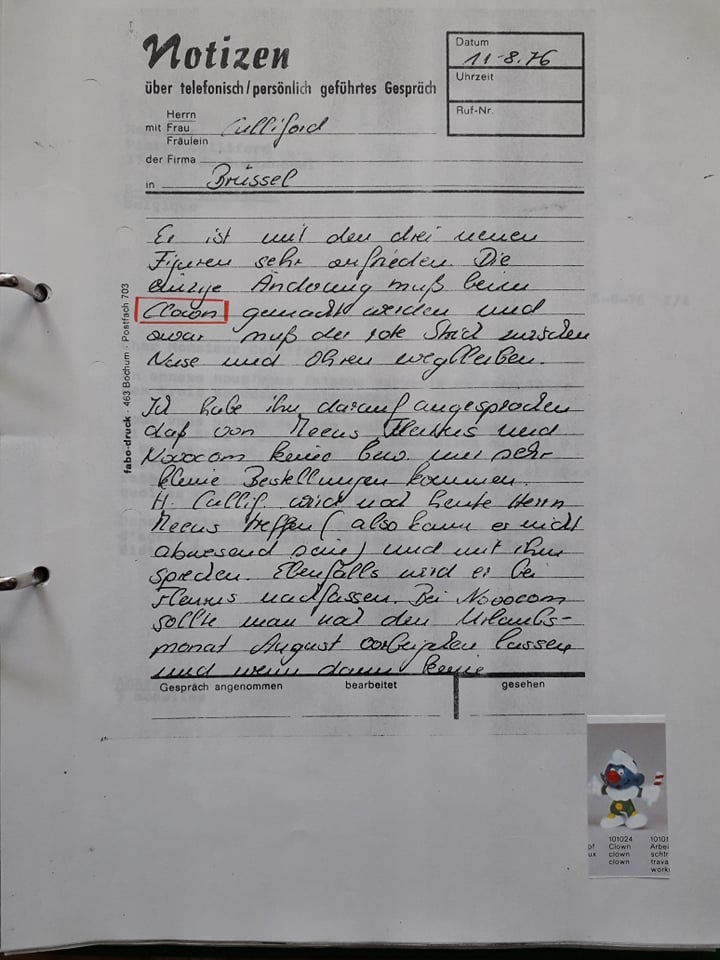 Notizen
über telefonisch/persönlich geführtes Gespräch
Datum 11-8.76
Uhrzeit
Ruf-Nr.
Herrn
mit Frau Culliford
Fräulein
der Firma
in Brüssel
Er ist mit den drei neuen
Figuren sehr zufrieden. Die
einzige Änderung muß beim
Clown gemacht werden und
zwar muß der rote Strich zwischen
Nase und Ohren wegbleiben.
Ich habe ihn darauf angesprochen
daß von Meeus Fleurus und
Novocom keine bzw. nur sehr
kleine Bestellungen kommen.
H. Cullif. wird noch heute Herrn
Meeus treffen (also kann er nicht
abwesend sein) und mit ihm
sprechen. Ebenfalls wird er bei
Fleurus nachfassen. Bei Novocom
sollte man noch den Urlaubs-
monat August vorbeigehen lassen
und wenn dann keine
Gespräch angenommen bearbeitet gesehen
fabo-druck · 463 Bochum · Postfach 703
101024 1010
of Clown Arbei
ux clown schtr
clown trava
work